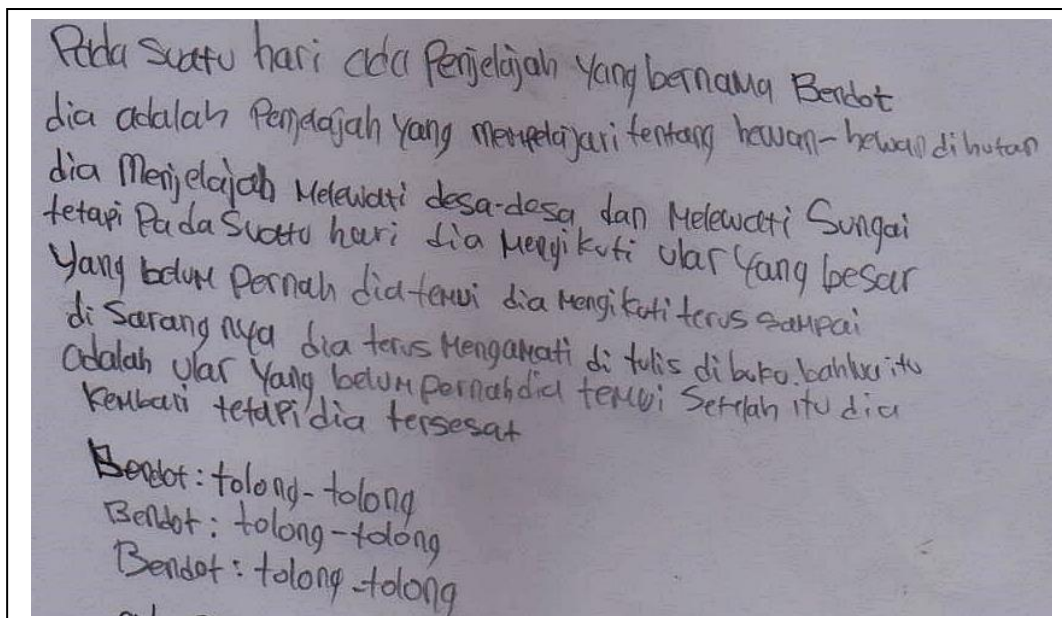 Pada suatu hari ada Penjelajah yang bernama Bendot
dia adalah Penjelajah yang mempelajari tentang hewan-hewan dihutan
dia Menjelajah Melewati desa-desa dan Melewati Sungai
tetapi Pada Suatu hari dia Mengikuti ular yang besar
Yang belum Pernah dia temui dia Mengikuti terus sampai
di Sarang nya dia terus Mengamati di tulis di buku. bahwa itu
adalah ular Yang belum pernah dia temui Setelah itu dia
Kembari tetapi dia tersesat
Bendot: tolong-tolong
Bendot: tolong-tolong
Bendot: tolong-tolong